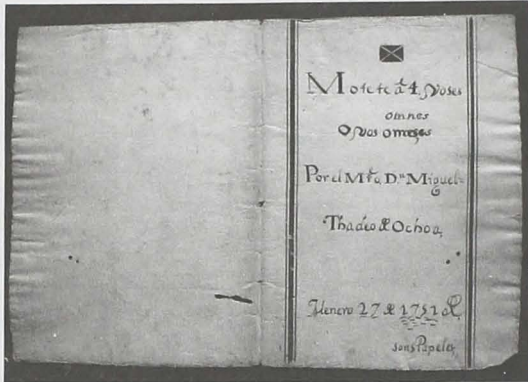 Motete â 4. Voses
omnes
O Vos omnes
Por el Mrō. Dn. Miguel
Thadeo de Ochoa,
Henero 27 de 1751 a.
son 5 Papeles